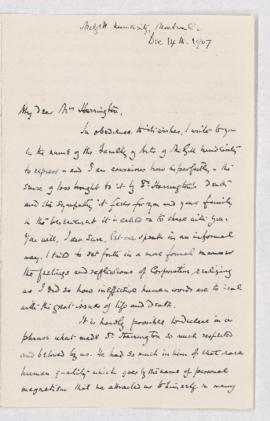 McGill University, Montreal
Dec 14th. 1907
My dear Mrs Harrington,
In obedience to its wishes, I write to you
in the name of the Faculty of Arts of McGill University
to express – and I am conscious how imperfectly – the
sense of loss brought to it by Dr. Harrington's death
and the sympathy it feels for you and your family
in the bereavement it is called on to share with you.
You will, I am sure, let me speak in an informal
way. I tried to set forth in a more formal manner
the feelings and reflections of Corporation, realizing
as I did so how ineffective human words are to deal
with the great issues of life and death.
It is hardly possible to declare in a
phrase what made Dr Harrington so much respected
and beloved by us. He had so much in him of that rare
human quality which goes by the name of personal
magnetism that he attracted us to him by in many